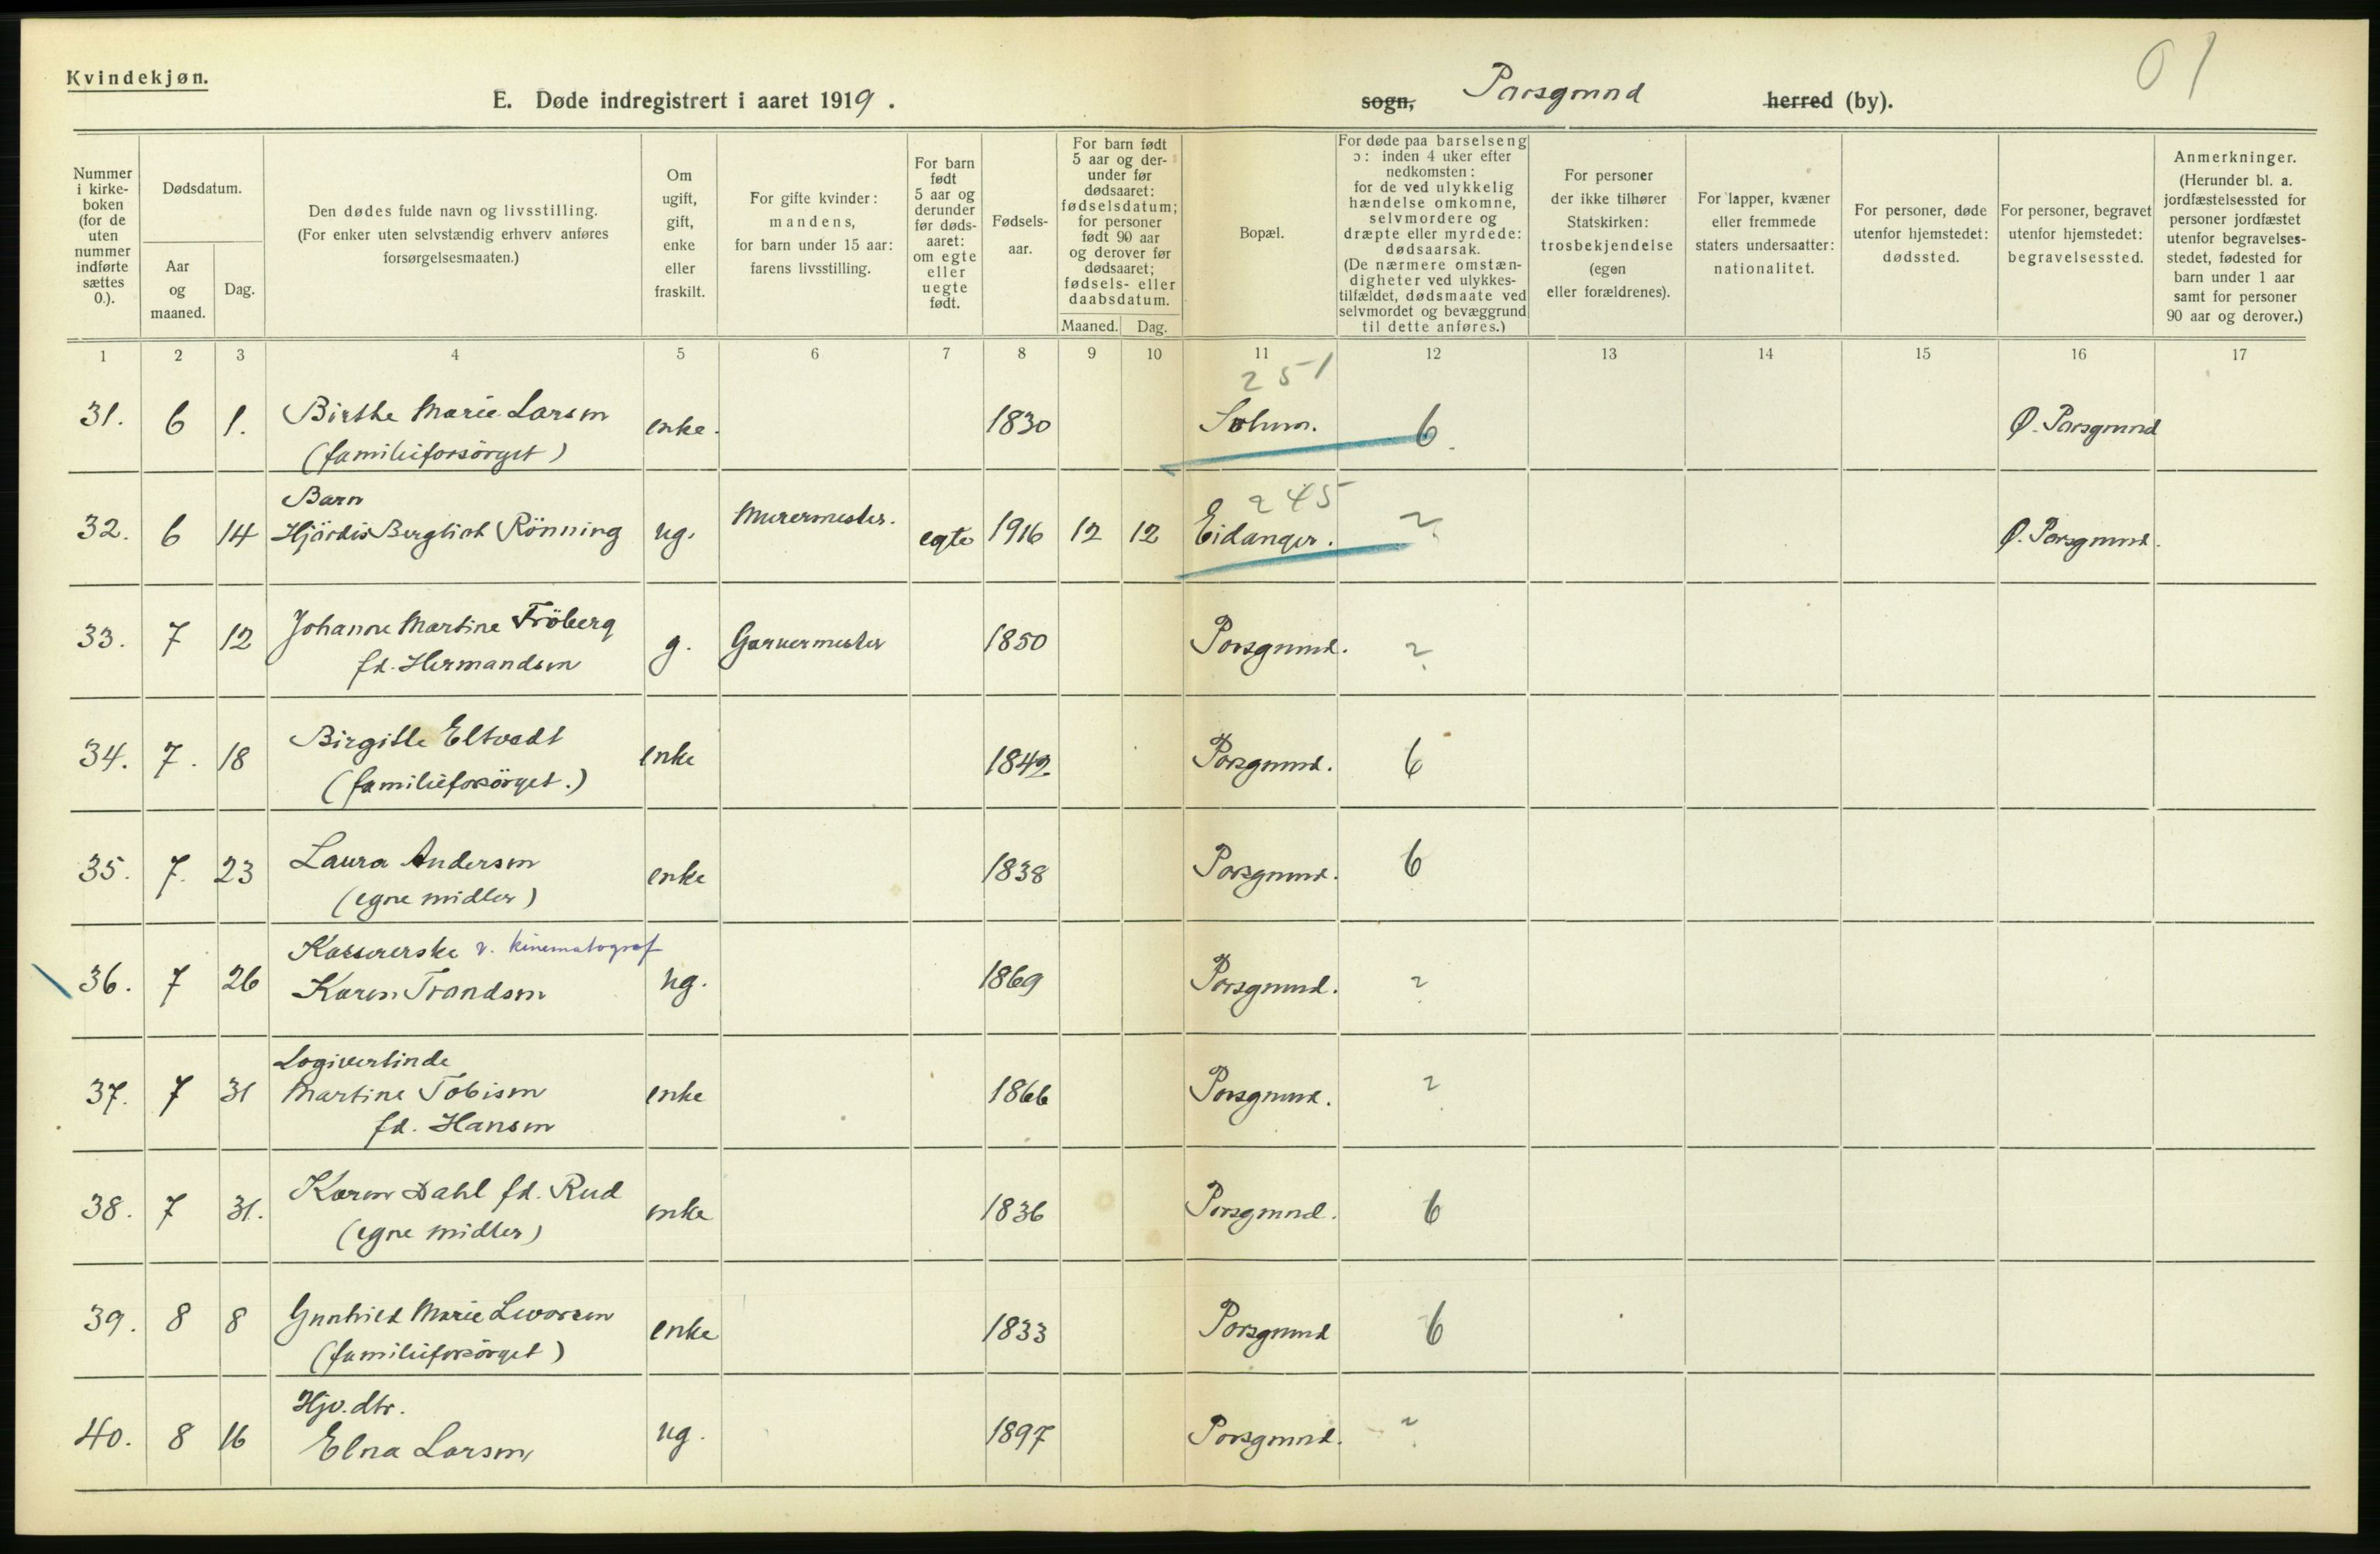 Kvindekjøn.
01
E. Døde indregistrert i aaret 1919.
sogn, Porsgrund herred (by).
Nummer i kirke-boken (for de uten nummer indførte sættes 0.).
Dødsdatum.
Aar og maaned.
Dag.
Den dødes fulde navn og livsstilling. (For enker uten selvstændig erhverv anføres forsørgelsesmaaten.)
Om ugift, gift, enke eller fraskilt.
For gifte kvinder: mandens, for barn under 15 aar: farens livsstilling.
For barn født 5 aar og derunder før døds-aaret: om egte eller uegte født.
Fødsels-aar.
For barn født 5 aar og der-under før dødsaaret: fødselsdatum; for personer født 90 aar og derover før dødsaaret; fødsels- eller daabsdatum.
Maaned. Dag.
Bopæl.
For døde paa barselseng ɔ: inden 4 uker efter nedkomsten: for de ved ulykkelig hændelse omkomne, selvmordere og dræpte eller myrdede: dødsaarsak. (De nærmere omstæn-digheter ved ulykkes-tilfældet, dødsmaate ved selvmordet og bevæggrund til dette anføres.)
For personer der ikke tilhører Statskirken: trosbekjendelse (egen eller forældrenes).
For lapper, kvæner eller fremmede staters undersaatter: nationalitet.
For personer, døde utenfor hjemstedet: dødssted.
For personer, begravet utenfor hjemstedet: begravelsessted.
Anmerkninger. (Herunder bl. a. jordfæstelsessted for personer jordfæstet utenfor begravelses-stedet, fødested for barn under 1 aar samt for personer 90 aar og derover.)
1 2 3 4 5 6 7 8 9 10 11 12 13 14 15 16 17
251
31. 6 1. Birthe Marie Larsen enke. 1830 Solum. 6 Ø. Porsgrund
(familieforsörget)
Barn 245
32. 6 14 Hjördis Bergliot Rönning ug. Murermester. egte 1916 12 12 Eidanger. ? Ø. Porsgrund.
33. 7 12 Johanne Martine Fröberg g. Garvermester 1850 Porsgrund. ?
fd. Hermandsen
34. 7. 18 Birgitte Eltvedt enke 1842 Porsgrund. 6
(familieforsörget.)
35. 7. 23 Laura Andersen enke 1838 Porsgrund. 6
(egne midler)
Kassererske v. kinematograf
36. 7 26 Karen Trandsen ug. 1869 Porsgrund. ?
Logivertinde
37. 7 31 Martine Tobisen enke 1866 Porsgrund. ?
fd. Hansen
38. 7 31. Karen Dahl fd. Rud enke 1836 Porsgrund. 6
(egne midler)
39. 8 8 Gunhild Marie Levorsen enke 1833 Porsgrund 6
(familieforsörget)
Hjv. dtr.
40. 8 16 Elna Larsen ug. 1897 Porsgrund. ?